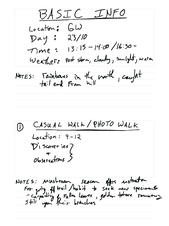 BASIC INFO
Location: GW
Day: 23/10
Time: 13:15-14:00/16:30-
Weather: Post storm, cloudy, sunlight, warm
NOTES: Rainbows in the north, caught
tail end from hill
① CASUAL WALK/PHOTO WALK
Location: 4-12
Discoveries
+
observations
NOTES: Mushroom season
to seek new specimens
leaves, golden
still upon their branches